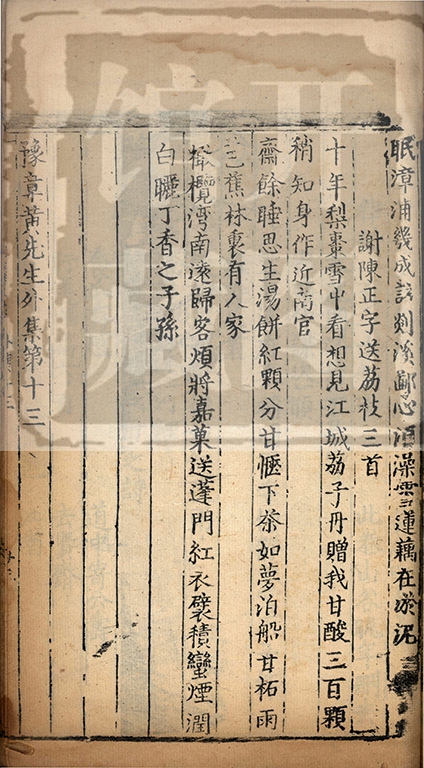 眠漳浦幾成誤剡溪鄙心須澡雪蓮藕在淤泥
謝陳正字送荔枝三首
十年梨棗雪中看想見江城荔子丹贈我甘酸三百顆
稍知身作近南官
齋餘睡思生湯餅紅顆分甘愜下茶如夢泊船甘柘雨
芭蕉林裏有人家
橄欖灣南遠歸客煩將嘉菓送蓬門紅衣襞積蠻煙潤
白曬丁香之子孫
豫章黃先生外集第十三